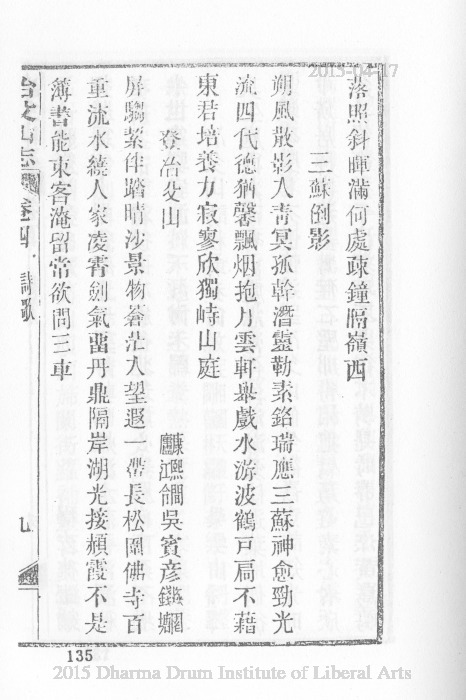 2015-04-17
落照斜暉滿何處疎鐘隔嶺西
三蘇倒影
朔風散影入青冥孤幹潛靈勒素銘瑞應三蘇神愈勁光
流四代德猶馨飄烟抱月雲軒舉戲水游波鶴戸扃不藉
東君培養力寂寥欣獨峙山庭
登冶父山
吳賓彥
屏騶絜伴踏晴沙景物蒼茫入望遐一帶長松圍佛寺百
重流水繞人家凌霄劍氣畱丹鼎隔岸湖光接頳霞不是
簿書能束客淹留常欲問三車
冶父山志 卷四 詩歌 九
135
2015 Dharma Drum Institute of Liberal Arts